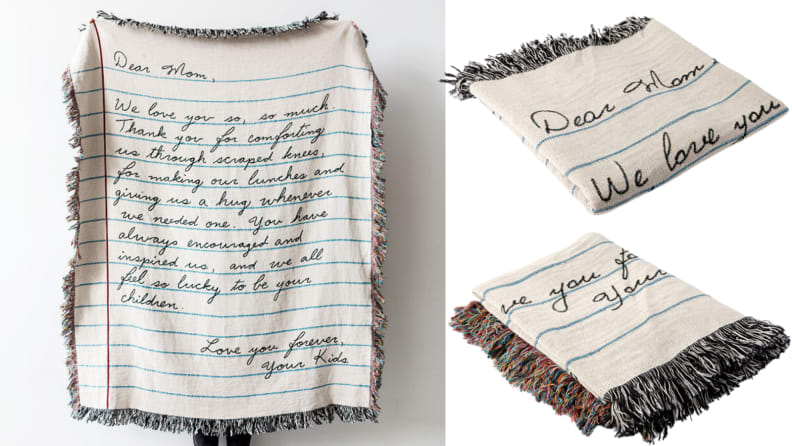 Dear Mom,
We love you so, so much.
Thank you for comforting
us through scraped knees,
for making our lunches and
giving us a hug whenever
we needed one. You have
always encouraged and
inspired us, and we all
feel so lucky to be your
children.
Love you forever,
Your Kids
Dear Mom
We love you
ve you fo
Your